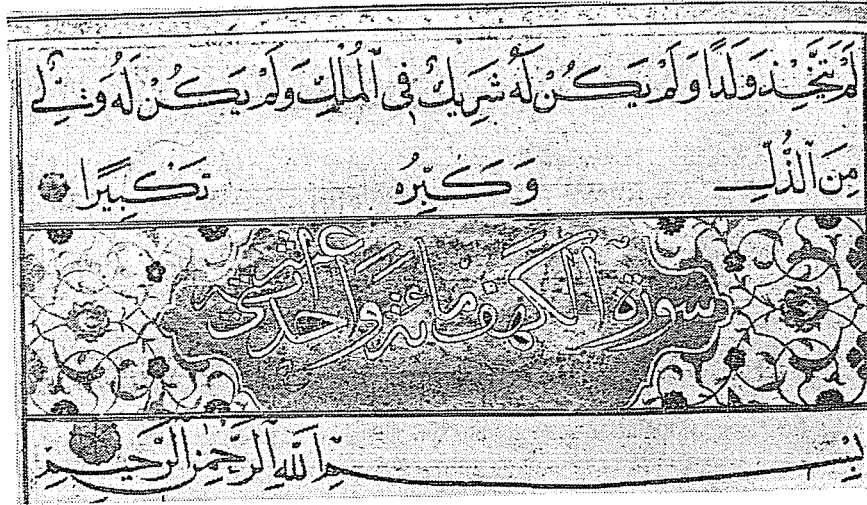 لَمْ يَتَّخِذْ وَلَدًا وَلَمْ يَكُنْ لَهُ شَرِيكٌ فِي ٱلْمُلْكِ وَلَمْ يَكُنْ لَهُ وَلِيٌّ
مِنَ ٱلذُّلِّ وَكَبِّرْهُ تَكْبِيرًا
سورة الكهف مائة واحدى عشرة
بِسْمِ ٱللَّهِ ٱلرَّحْمٰنِ ٱلرَّحِيمِ